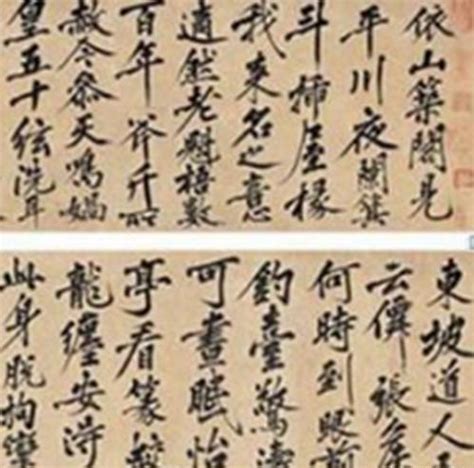 依山築閣見
平川夜闌箕
斗插屋椽
我來名之意
適然老魁梧數
百年斧斤所
赦今參天鳴媧
皇五十弦洗耳
東坡道人
張侯
何時到眼前
釣臺驚濤
可晝眠怡
亭看篆
龍纏安得
此身脫拘攣